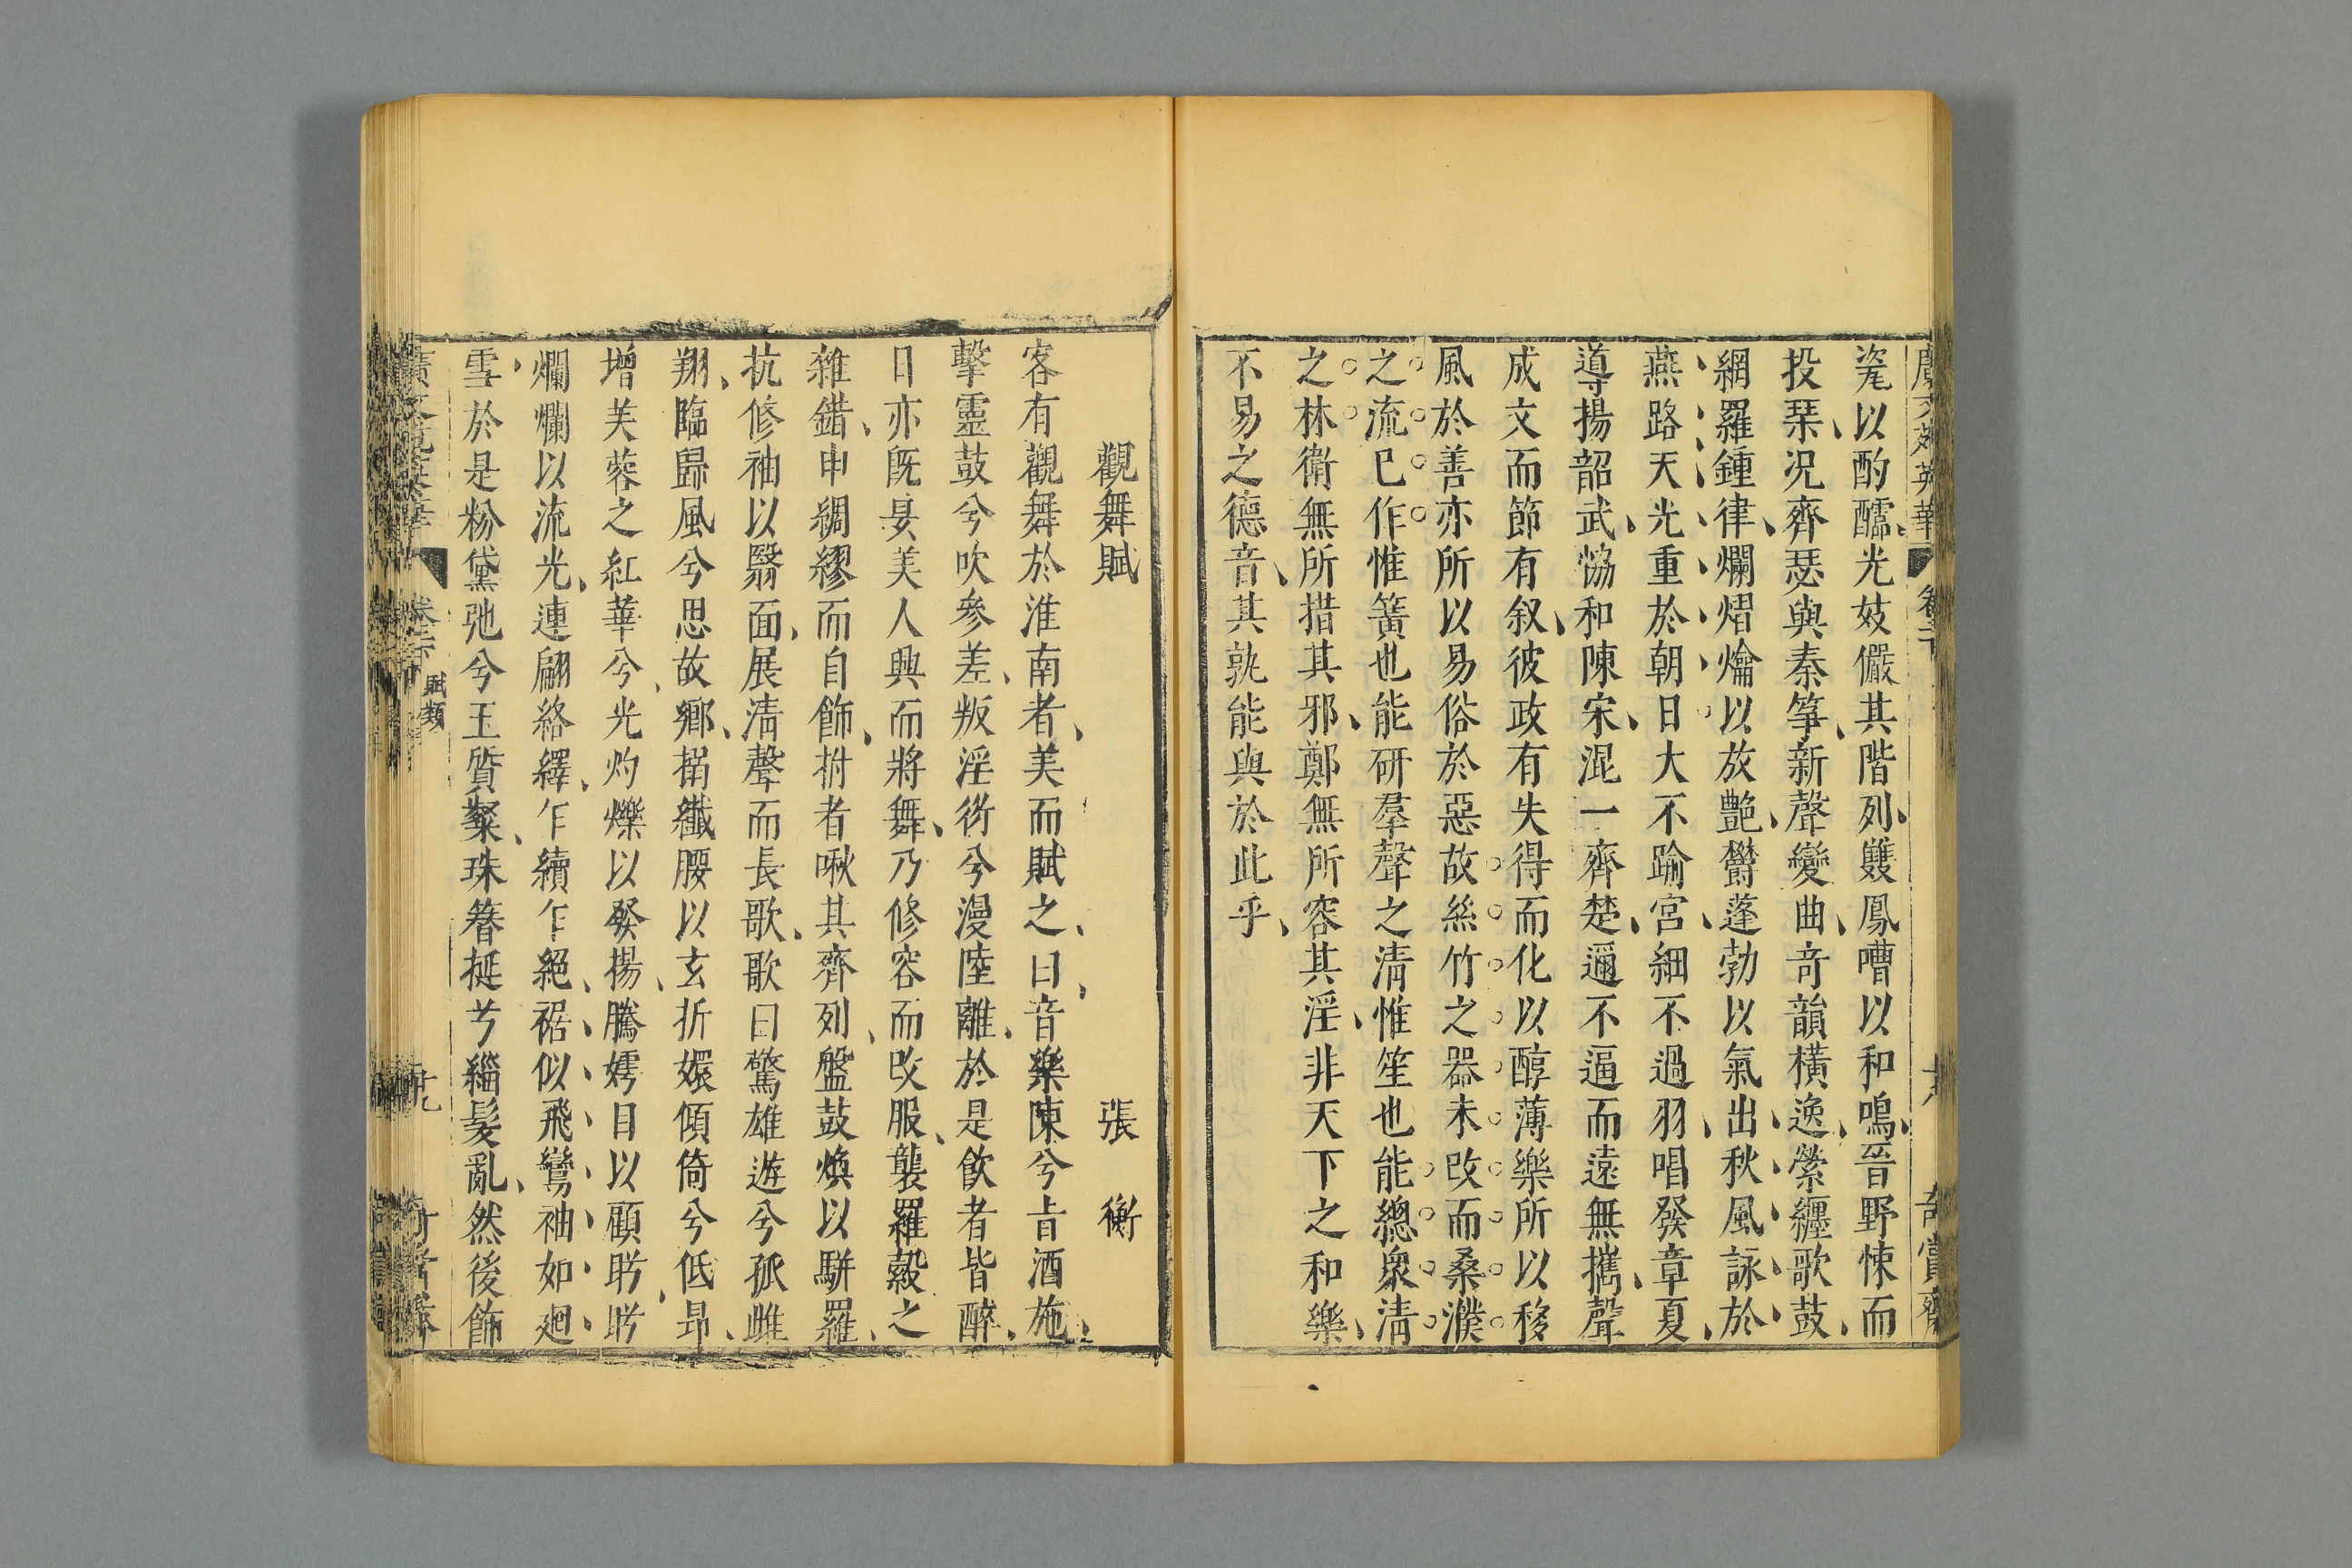 廣文苑英華 卷二十 十八 奇賞齋
瓷以酌醽光妓儼其階列雙鳳嘈以和鳴晉野悚而
投栞况齊瑟與秦箏新聲變曲奇韻橫逸縈纏歌鼓
網羅鍾律爛熠爚以放艷欝蓬勃以氣出秋風詠於
燕路天光重於朝日大不踰宮細不過羽唱發章夏
導揚韶武恊和陳宋混一齊楚邇不逼而遠無攜聲
成文而節有叙彼政有失得而化以醇薄樂所以移
風於善亦所以易俗於惡故絲竹之器未改而桑濮
之流已作惟簧也能研羣聲之清惟笙也能總衆清
之林衛無所措其邪鄭無所容其淫非天下之和樂
不易之德音其孰能與於此乎
觀舞賦 張衡
客有觀舞於淮南者美而賦之曰音樂陳兮旨酒施
擊靈鼓兮吹參差叛淫衍兮漫陸離於是飲者皆醉
日亦旣昃美人興而將舞乃修容而改服襲羅縠之
雜錯申綢繆而自飾拊者啾其齊列盤鼓煥以駢羅
抗修袖以翳面展清聲而長歌歌曰驚雄逝兮孤雌
翔臨歸風兮思故鄉搦纖腰以玄折嬛傾倚兮低昂
增芙蓉之紅華兮光灼爍以發揚騰嫮目以顧眄眄
爛爛以流光連翩絡繹乍續乍絕裾似飛鸞袖如廻
雪於是粉黛弛兮玉質粲珠簪挻兮緇髮亂然後飾
廣文苑英華 卷二十 賦類 十九 奇賞齋